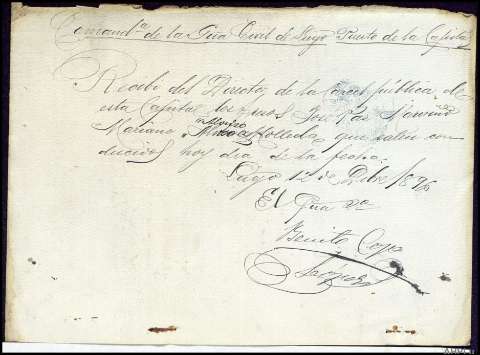 Comand.ª de la Gúa Civil de Lugo Puesto de la Capital
Recibi del Director de la Carcel pública de
esta Capital los presos José Paz
Mariano Molleda, que salen con
ducidos hoy dia de la fecha.
Lugo 12 de Dbre 1896
El Gua 2º
Benito